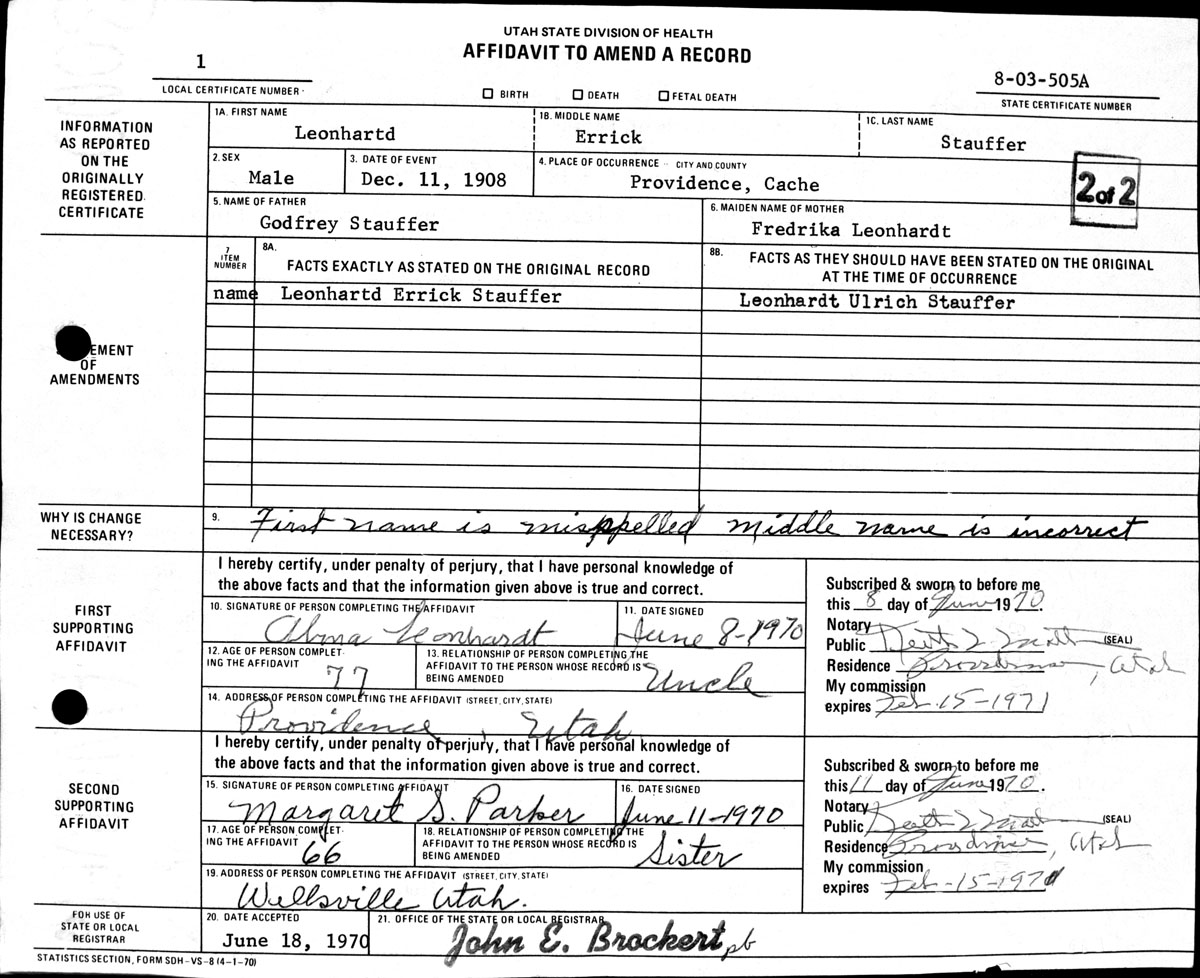 UTAH STATE DIVISION OF HEALTH
AFFIDAVIT TO AMEND A RECORD
1
LOCAL CERTIFICATE NUMBER
☐ BIRTH ☐ DEATH ☐ FETAL DEATH
8-03-505A
STATE CERTIFICATE NUMBER
INFORMATION
AS REPORTED
ON THE
ORIGINALLY
REGISTERED
CERTIFICATE
1A. FIRST NAME
Leonhartd
1B. MIDDLE NAME
Errick
1C. LAST NAME
Stauffer
2. SEX
Male
3. DATE OF EVENT
Dec. 11, 1908
4. PLACE OF OCCURRENCE - CITY AND COUNTY
Providence, Cache
2 of 2
5. NAME OF FATHER
Godfrey Stauffer
6. MAIDEN NAME OF MOTHER
Fredrika Leonhardt
7
ITEM
NUMBER
8A.
FACTS EXACTLY AS STATED ON THE ORIGINAL RECORD
8B.
FACTS AS THEY SHOULD HAVE BEEN STATED ON THE ORIGINAL
AT THE TIME OF OCCURRENCE
name Leonhartd Errick Stauffer
Leonhardt Ulrich Stauffer
EMENT
OF
AMENDMENTS
WHY IS CHANGE
NECESSARY?
9. First name is mispelled middle name is incorrect
FIRST
SUPPORTING
AFFIDAVIT
I hereby certify, under penalty of perjury, that I have personal knowledge of
the above facts and that the information given above is true and correct.
10. SIGNATURE OF PERSON COMPLETING THE AFFIDAVIT
Alma Leonhardt
11. DATE SIGNED
June 8-1970
12. AGE OF PERSON COMPLET-
ING THE AFFIDAVIT
77
13. RELATIONSHIP OF PERSON COMPLETING THE
AFFIDAVIT TO THE PERSON WHOSE RECORD IS
BEING AMENDED
Uncle
14. ADDRESS OF PERSON COMPLETING THE AFFIDAVIT (STREET, CITY, STATE)
Providence, Utah
Subscribed & sworn to before me
this 8 day of June 1970.
Notary
Public (SEAL)
Residence , Utah
My commission
expires Feb. 15-1971
SECOND
SUPPORTING
AFFIDAVIT
I hereby certify, under penalty of perjury, that I have personal knowledge of
the above facts and that the information given above is true and correct.
15. SIGNATURE OF PERSON COMPLETING AFFIDAVIT
Margaret S. Parker
16. DATE SIGNED
June 11-1970
17. AGE OF PERSON COMPLET-
ING THE AFFIDAVIT
66
18. RELATIONSHIP OF PERSON COMPLETING THE
AFFIDAVIT TO THE PERSON WHOSE RECORD IS
BEING AMENDED
Sister
19. ADDRESS OF PERSON COMPLETING THE AFFIDAVIT (STREET, CITY, STATE)
Wellsville Utah.
Subscribed & sworn to before me
this 11 day of June 1970.
Notary
Public (SEAL)
Residence , Utah
My commission
expires Feb-15-1971
FOR USE OF
STATE OR LOCAL
REGISTRAR
20. DATE ACCEPTED
June 18, 1970
21. OFFICE OF THE STATE OR LOCAL REGISTRAR
John E. Brockert pb
STATISTICS SECTION, FORM SDH-VS-8 (4-1-70)